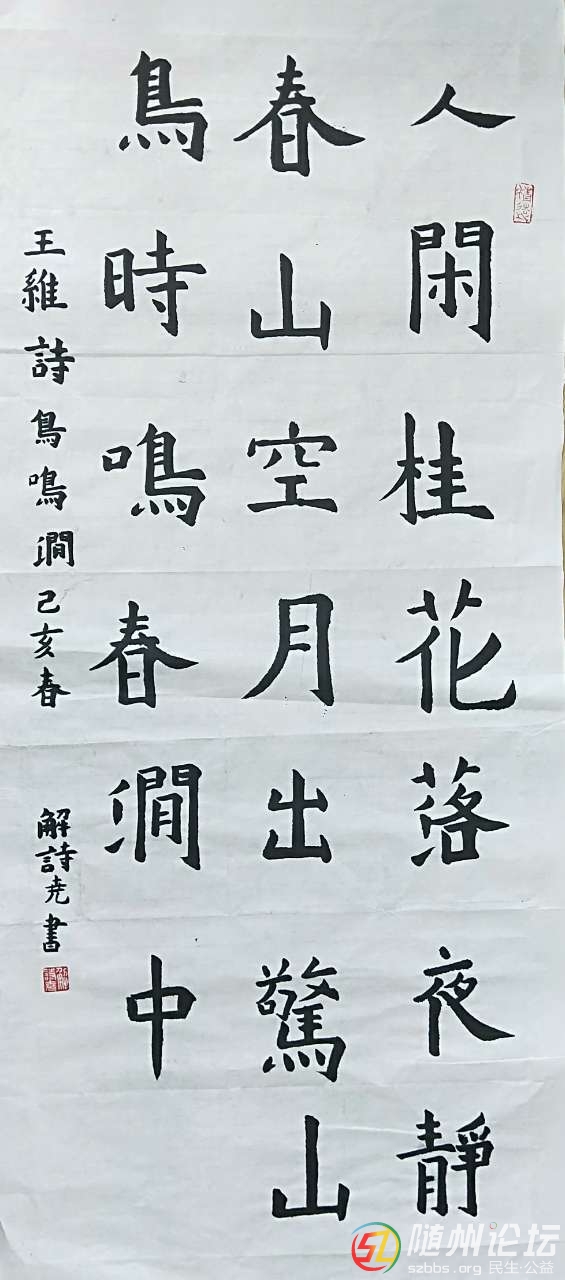 人閑桂花落夜靜
春山空月出驚山
鳥時鳴春澗中
王維詩鳥鳴澗己亥春
解詩尭書
随州论坛
szbbs.org 民生·公益